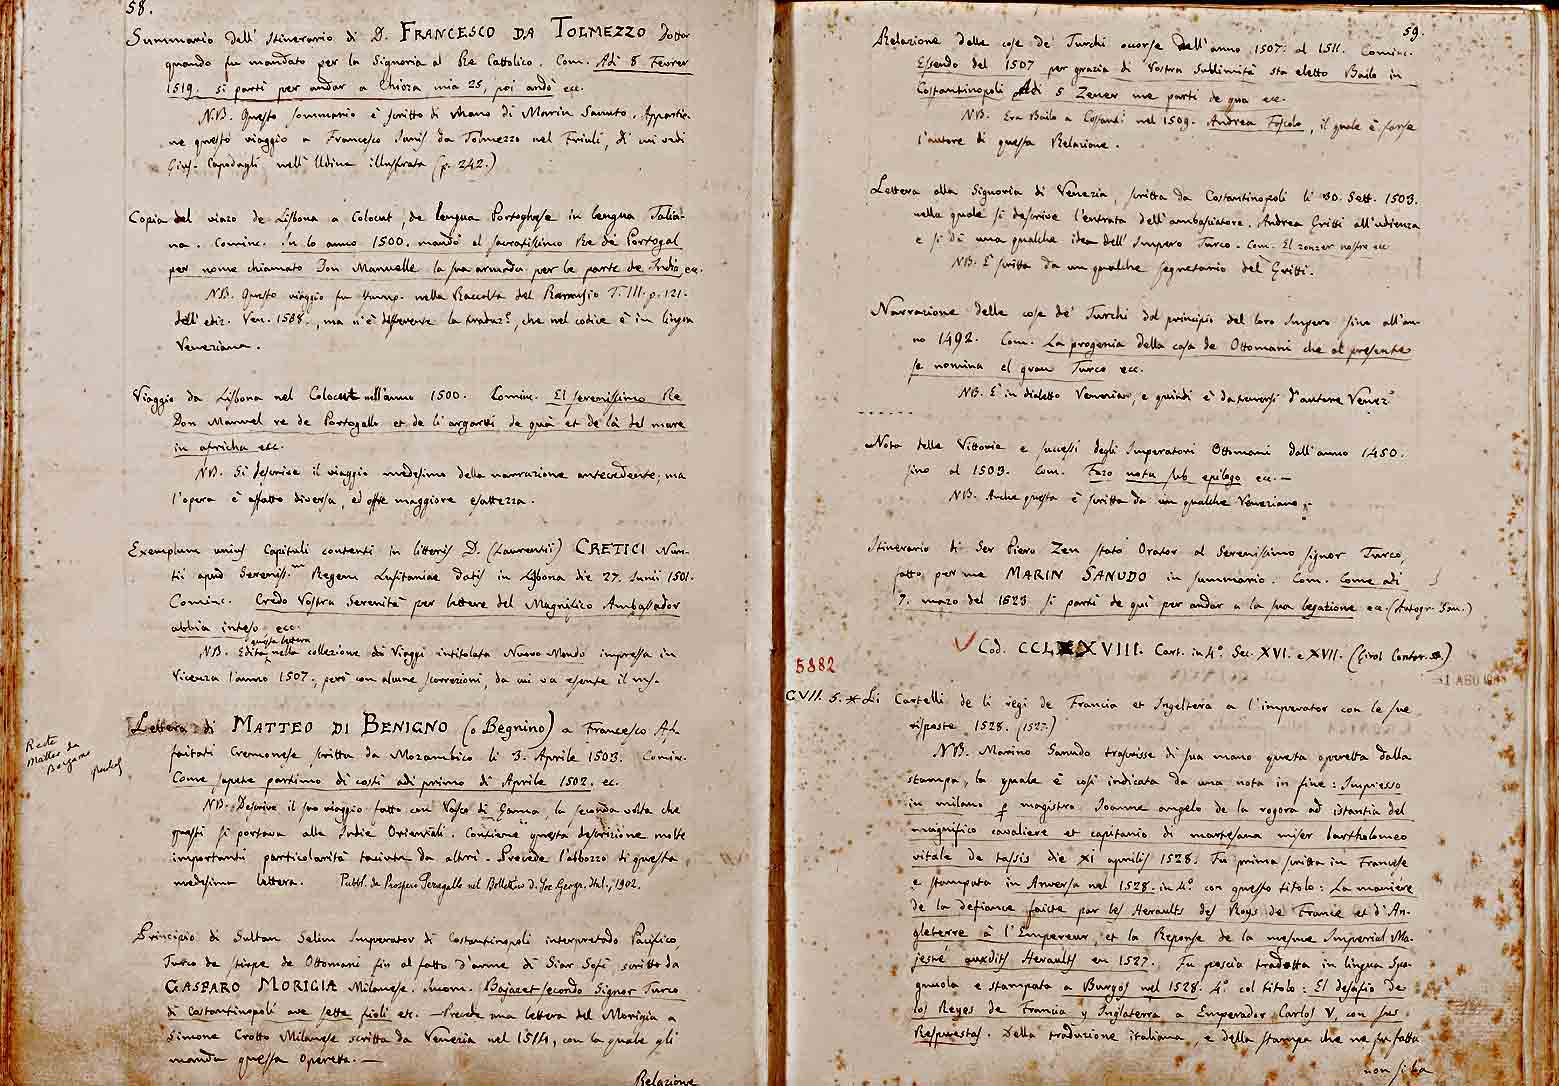 58.
Summario dell' Itinerario di D. FRANCESCO DA TOLMEZZO Dottor
quando fu mandato per la Signoria al Re Cattolico. Com. Adi 8 Fevrer
1519. si parti per andar a Chioza mia 25, poi andò ec.
N.B. Questo sommario è scritto di mano di Marin Sanuto. Appartie-
ne questo viaggio a Francesco Janis da Tolmezzo nel Friuli, di cui vedi
Gius. Capodagli nell' Udine illustrata (p. 242.)
Copia del viazo de Lisbona a Colocut, de lengua Portoghese in lengua Talia-
na. Cominc. In lo anno 1500. mandò el sacratissimo Re de Portogal
per nome chiamato Don Manuelle la sua armada per le parte de India ec.
NB. Questo viaggio fu stamp. nella Raccolta del Ramusio T. III. p. 121.
dell' ediz. Ven. 1588., ma n'è differente la traduz.e, che nel codice è in lingua
Veneziana.
Viaggio da Lisbona nel Colocut nell'anno 1500. Cominc. El serenissimo Re
Don Manuel re de Portogallo et de li argarvi de quà et de là del mare
in africha ecc.
NB. Si descrive il viaggio medesimo della narrazione antecedente; ma
l'opera è affatto diversa, ed offre maggiore esattezza.
Exemplum unius Capituli contenti in litteris D. (Laurentii) CRETICI Nun-
tii apud Sereniss.m Regem Lusitaniae datis in Lisbona die 27. Junii 1501.
Cominc. Credo Vostra Serenità per lettere del Magnifico Ambassador
abbia inteso ecc.
questa lettera
NB. Edita nella collezione di Viaggi intitolata Nuovo Mondo impressa in
Vicenza l'anno 1507., però con alcune scorrezioni, da cui va esente il ms.
Lettera di MATTEO DI BENIGNO (o Begnino) a Francesco Af-
faitati Cremonese scritta da Mozambico li 3. Aprile 1503. Cominc.
Come sapete partimo di costì adi primo di Aprile 1502. ec.
Recte
Matteo da
Bergamo
NB. Descrive il suo viaggio fatto con Vasco di Gamma la seconda volta che
questi si portava alle Indie Orientali. Contiene questa descrizione molte
importanti particolarità taciute da altri. Precede l'abbozzo di questa
medesima lettera. Pubbl. da Prospero Peragallo nel Bollettino d. Soc. Geogr. Ital., 1902.
Principio di Sultan Selim Imperator di Costantinopoli interpretado Pacifico,
Turco de stirpe de Ottomani fin al fatto d'arme di Siar Sofì, scritto da
GASPARO MORIGIA Milanese. Incom. Bajazet secondo Signor Turco
di Costantinopoli ave sette fioli etc. Precede una lettera del Morigia a
Simone Crotto Milanese scritta da Venezia nel 1514, con la quale gli
manda questa operetta.
Relazione
59.
Relazione delle cose de' Turchi occorse dell'anno 1507. al 1511. Cominc.
Essendo del 1507 per grazia di Vostra Sublimità sta eletto Bailo in
Costantinopoli Adi 5 Zener me parti de qua ec.
NB. Era Bailo a Costanti. nel 1509. Andrea Foscolo, il quale è forse
l'autore di questa Relazione.
Lettera alla Signoria di Venezia, scritta da Costantinopoli li 30. Sett. 1503.
nella quale si descrive l'entrata dell'ambasciatore Andrea Gritti all'udienza
e si dà una qualche idea dell' Impero Turco. Com. El zonzer nostro ec.
NB. È scritta da un qualche segretario del Gritti.
Narrazione delle cose de' Turchi dal principio del loro Impero sino all'an-
no 1492. Com. La progenia della casa de Ottomani che al presente
se nomina el gran Turco ec.
NB. È in dialetto Veneziano, e quindi è da trarsi d'autore Venez.o
Nota delle Vittorie e successi degli Imperatori Ottomani dall'anno 1450.
sino al 1503. Com. Fazo nota sub epilogo ec.
NB. Anche questa è scritta da un qualche Veneziano.
Itinerario di Ser Piero Zen stato Orator al Serenissimo signor Turco,
fatto per me MARIN SANUDO in summario. Com. Come adi
7. mazo del 1523 si partì de qui per andar a la sua legazione ec. (Autogr. San.)
Cod. CCLXXVIII. Cart. in 4°. Sec. XVI. e XVII. (Girol. Contar.)
5882
CVII. 5. * Li Cartelli de li regi de Francia et Ingelterra a l'imperator con le sue
risposte 1528. (1527.)
NB. Marino Sanudo trascrisse di sua mano questa operetta dalla
stampa, la quale è così indicata da una nota in fine: Impresso
in milano p magistro Joanne angelo de la rogora ad istantia del
magnifico cavaliere et capitanio di martesana miser bartholomeo
vitale de tassis die XI aprilis 1528. Fu prima scritta in Francese
e stampata in Anversa nel 1528. in 4°. con questo titolo: La maniére
de la defiance faicte par les Heraults des Roys de France et d'An-
gleterre à l'Empereur, et la Reponse de la mesme Imperial Ma-
jesté auxdits Heraults en 1527. Fu poscia tradotta in lingua Spa-
gnuola e stampata a Burgos nel 1528. 4°. col titolo: El desafio de
los Reyes de Francia y Inglaterra a Emperador Carlos V. con sus
Respuestas. Della traduzione italiana, e della stampa che ne fu fatta
non si ha